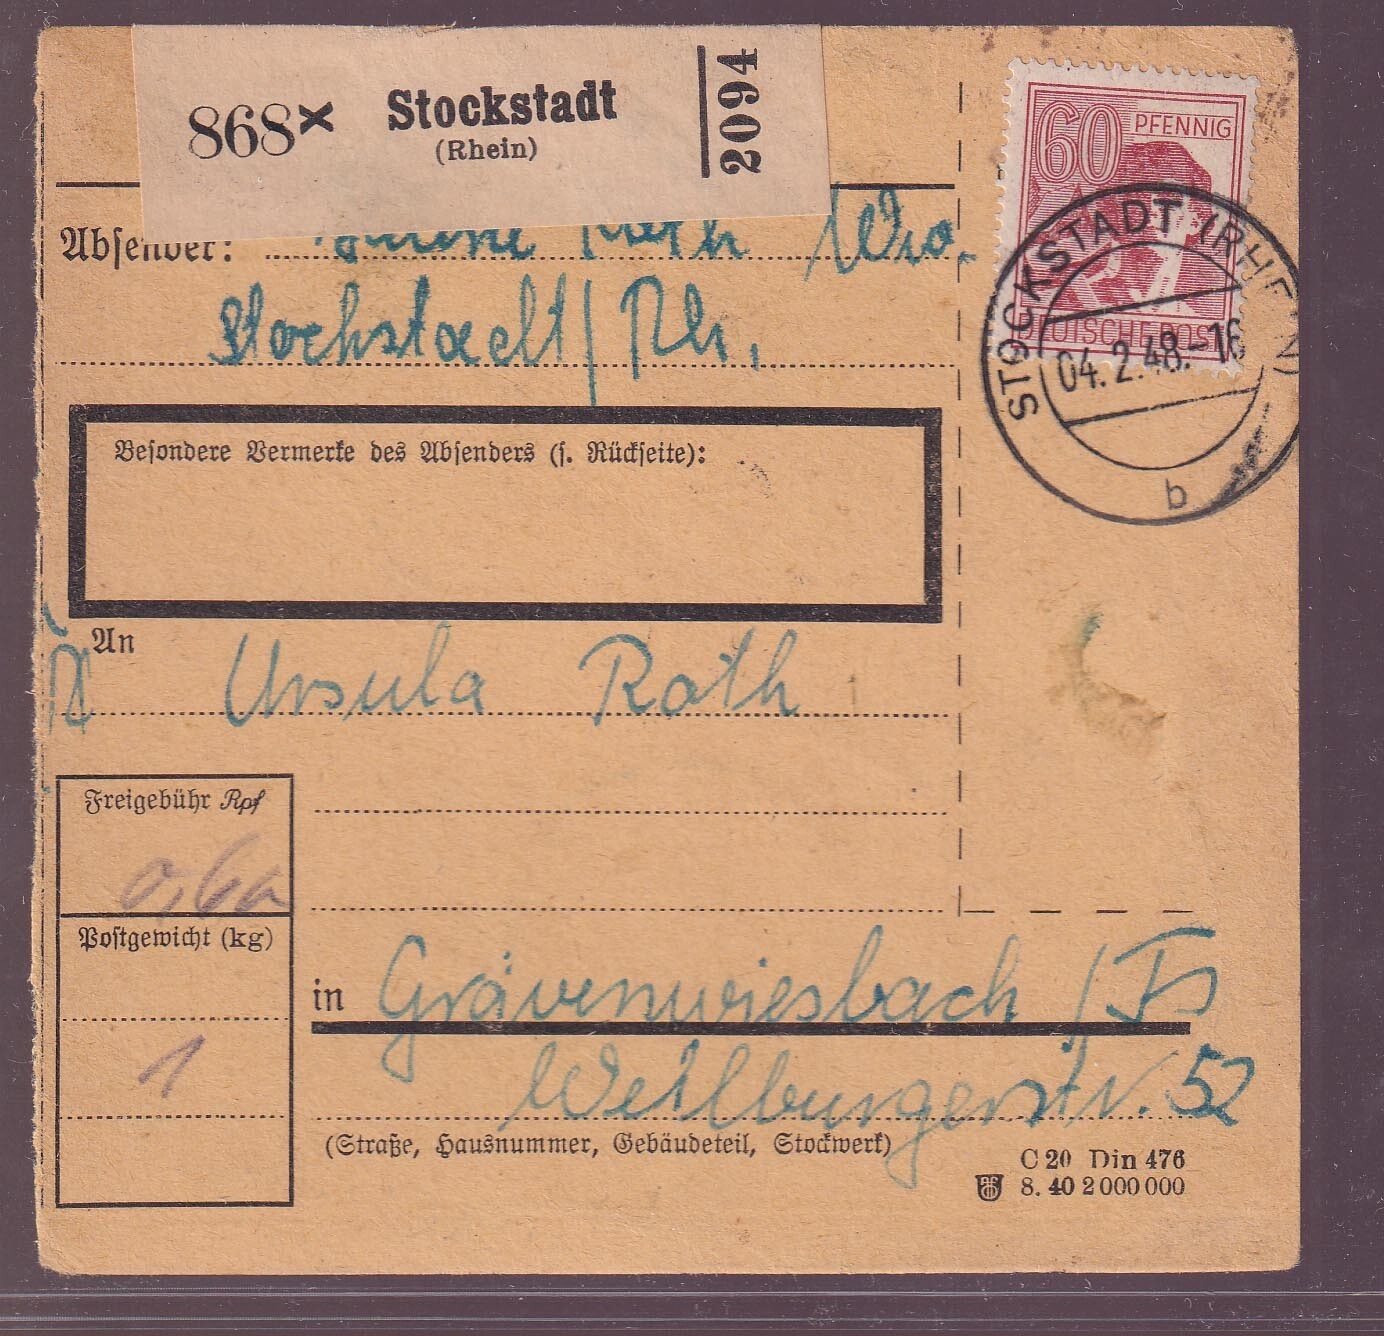 868x Stockstadt
(Rhein)
2094
60 PFENNIG
DEUTSCHE POST
STOCKSTADT (RHEIN)
04.2.48.-16
b
Absender: Roth
Stockstadt/Rh.
Besondere Vermerke des Absenders (s. Rückseite):
An
Ursula Roth
Freigebühr Rpf
0,60
Postgewicht (kg)
1
in Grävenwiesbach / Ts
Weilburgerstr. 52
(Straße, Hausnummer, Gebäudeteil, Stockwerk)
C 20 Din 476
8. 40 2 000 000